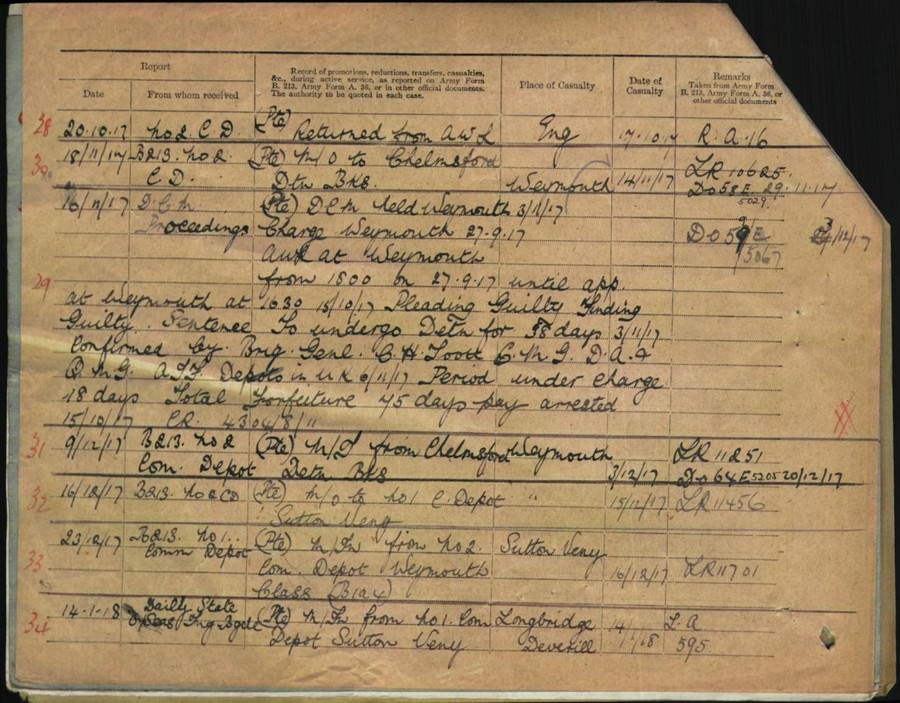 Report
Record of promotions, reductions, transfers, casualties,
&c., during active service, as reported on Army Form
B. 213, Army Form A. 36, or in other official documents.
The authority to be quoted in each case.
Place of Casualty
Date of
Casualty
Remarks
Taken from Army Form
B. 213, Army Form A. 36, or
other official documents
Date
From whom received
28 20.10.17 No 2 C D. (Pte) Returned from AWL Eng 17.10.17 R.A.16
30 18/11/17 B213. No 2. (Pte) M/O to Chelmsford LR 10625
C.D. Dtn Bks. Weymouth 14/11/17 DO58E. 29.11.17
5029
16/11/17 D.C.M. (Pte) DCM held Weymouth 3/11/17
Proceedings Charge Weymouth 27.9.17 DO59E /12/17
AWL at Weymouth 5067
29 from 1800 on 27.9.17 until app.
at Weymouth at 1030 15/10/17 Pleading Guilty Finding
Guilty. Sentence To undergo Detn for 58 days 3/11/17
Confirmed by Brig. Genl. C H Foott C.M.G. D.A.&
Q.M.G. A.I.F. Depots in U K 6/11/17 Period under charge
18 days Total Forfeiture 75 days pay arrested
15/10/17 CR. 4304/8/11
31 9/12/17 B213. No 2 (Pte) M/I from Chelmsford Weymouth LR 11251
Com. Depot Detn Bks 3/12/17 DO64E 5205 20/12/17
32 16/12/17 B213. No 2 CD (Pte) M/O to No 1 C. Depot " 15/12/17 LR 11456
Sutton Veny
33 23/12/17 B213. No 1.. (Pte) M/In from No 2. Sutton Veny
Comm Depot Com. Depot Weymouth 16/12/17 LR 11701
Class (B1a4)
34 14-1-18 Daily State (Pte) M/In from No 1. Com Longbridge 14/1/18
Tng Bgde Depot Sutton Veny Deverill 595